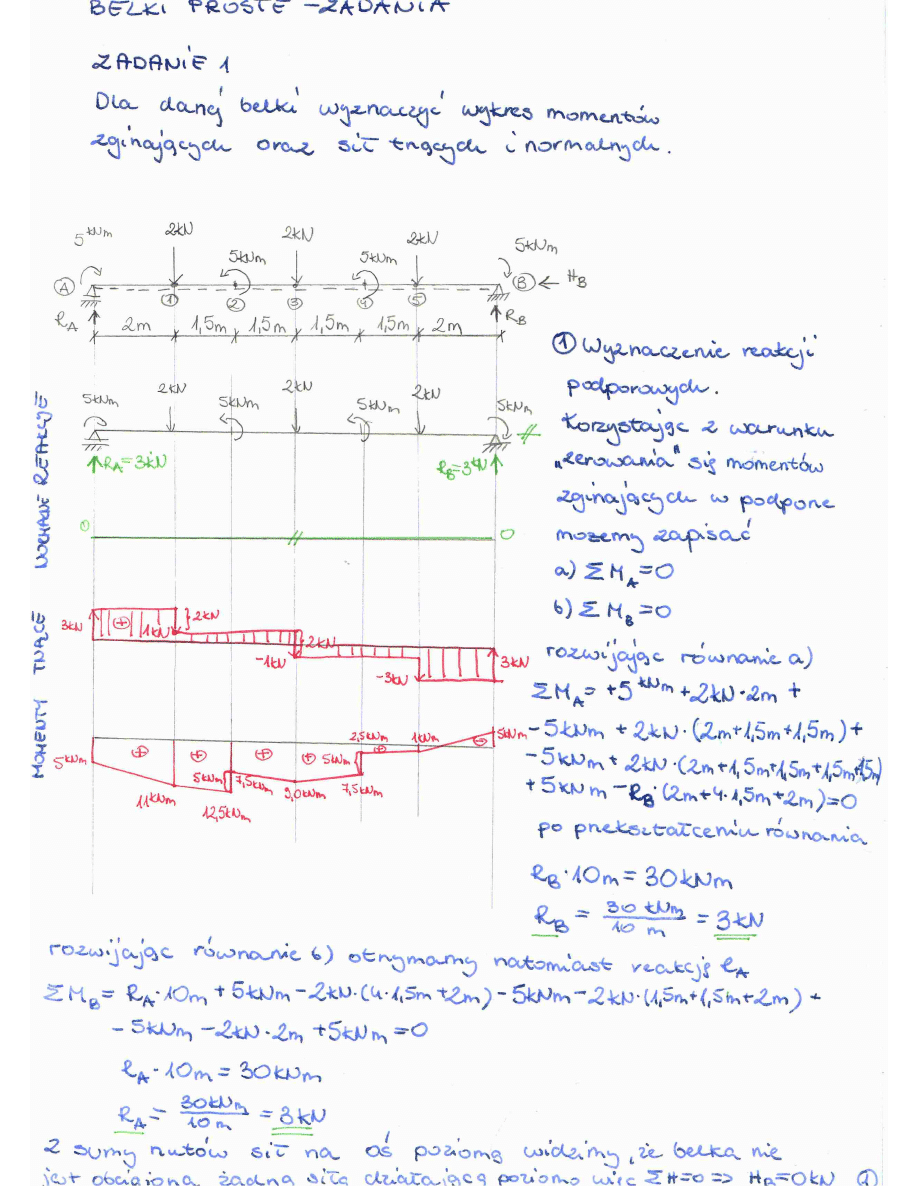 BELKI PROSTE - ZADANIA
ZADANIE 1
Dla danej belki wyznaczyć wykres momentów
zginających oraz sił tnących i normalnych.
5kNm 2kN 5kNm 2kN 5kNm 2kN 5kNm
A 1 2 3 4 5 B HB
RA RB
2m 1,5m 1,5m 1,5m 1,5m 2m
5kNm 2kN 5kNm 2kN 5kNm 2kN 5kNm
RA=3kN RB=3kN
0 0
3kN 1kN 2kN -1kN 2kN -3kN 3kN
5kNm 11kNm 5kNm 12,5kNm 7,5kNm 9,0kNm 5kNm 7,5kNm 2,5kNm 1kNm 5kNm
REAKCJE
TNĄCE
MOMENTY
① Wyznaczenie reakcji
podporowych.
Korzystając z warunku
„zerowania" się momentów
zginających w podporze
możemy zapisać
a) ΣMA=0
b) ΣMB=0
rozwijając równanie a)
ΣMA= +5kNm +2kN·2m +
-5kNm + 2kN·(2m+1,5m+1,5m)+
-5kNm+ 2kN·(2m+1,5m+1,5m+1,5m+1,5m)
+5kNm -RB·(2m+4·1,5m+2m)=0
po przekształceniu równania
RB·10m = 30kNm
RB = 30kNm / 10m = 3kN
rozwijając równanie b) otrzymamy natomiast reakcję RA
ΣMB= RA·10m +5kNm-2kN·(4·1,5m+2m)-5kNm-2kN·(1,5m+1,5m+2m) +
-5kNm -2kN·2m +5kNm =0
RA·10m = 30kNm
RA = 30kNm / 10m = 3kN
z sumy rzutów sił na oś poziomą widzimy, że belka nie
jest obciążona żadną siłą działającą poziomo więc ΣH=0 => HB=0kN